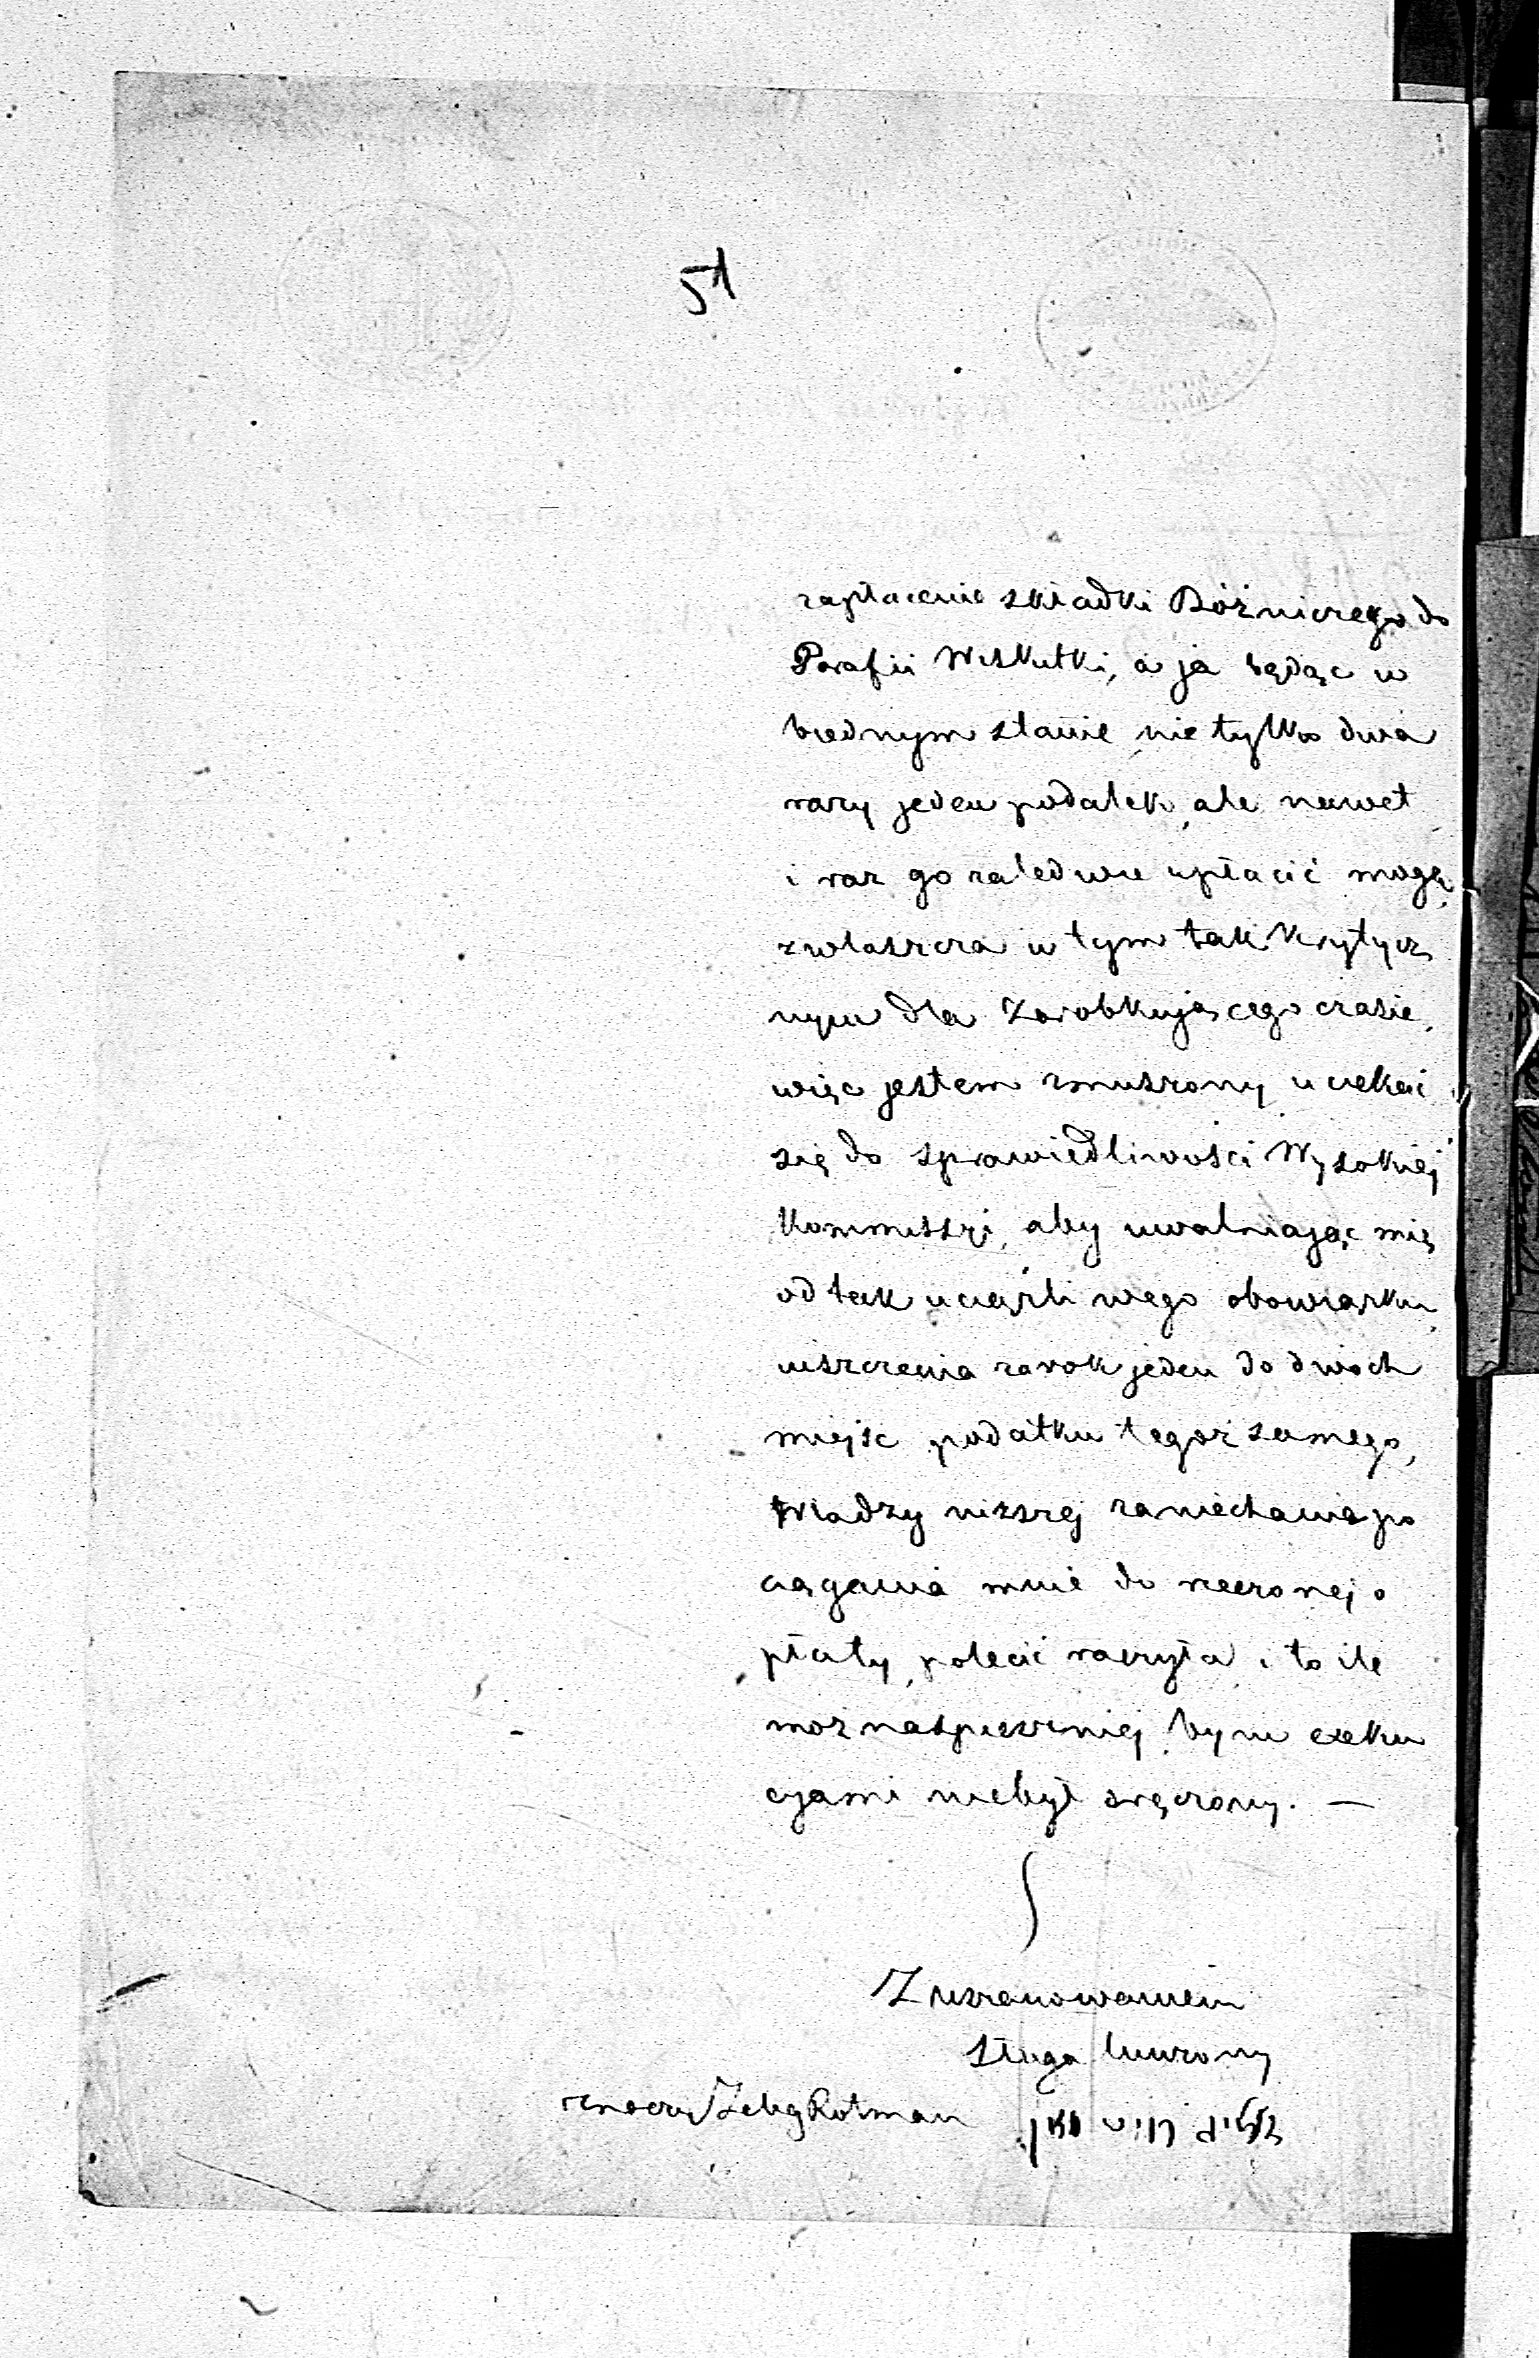 51
zapłacenie składki Bóżniczego do
Parafii Wiskitki, a ja będąc w
biednym stanie nie tylko dwa
razy jeden podatek, ale nawet
i raz go zaledwie opłacić mogę,
zwłaszcza w tym tak krytycz
nym dla Zarobkującego czasie,
więc jestem zmuszony uciekać
się do sprawiedliwości Wysokiej
Kommissyi, aby uwalniając mię
od tak uciążliwego obowiązku
uiszczenia za rok jeden do dwóch
miejsc podatku tegoż samego,
Władzy niższej zaniechanie po
ciągania mnie do rzeczonej o
płaty, polecić raczyła, i to ile
można spieszniej, bym exeku
cjami niebył dręczony. —
Z uszanowaniem
Sługa
znaczy Zelig Rotman זעליג רויטמאן